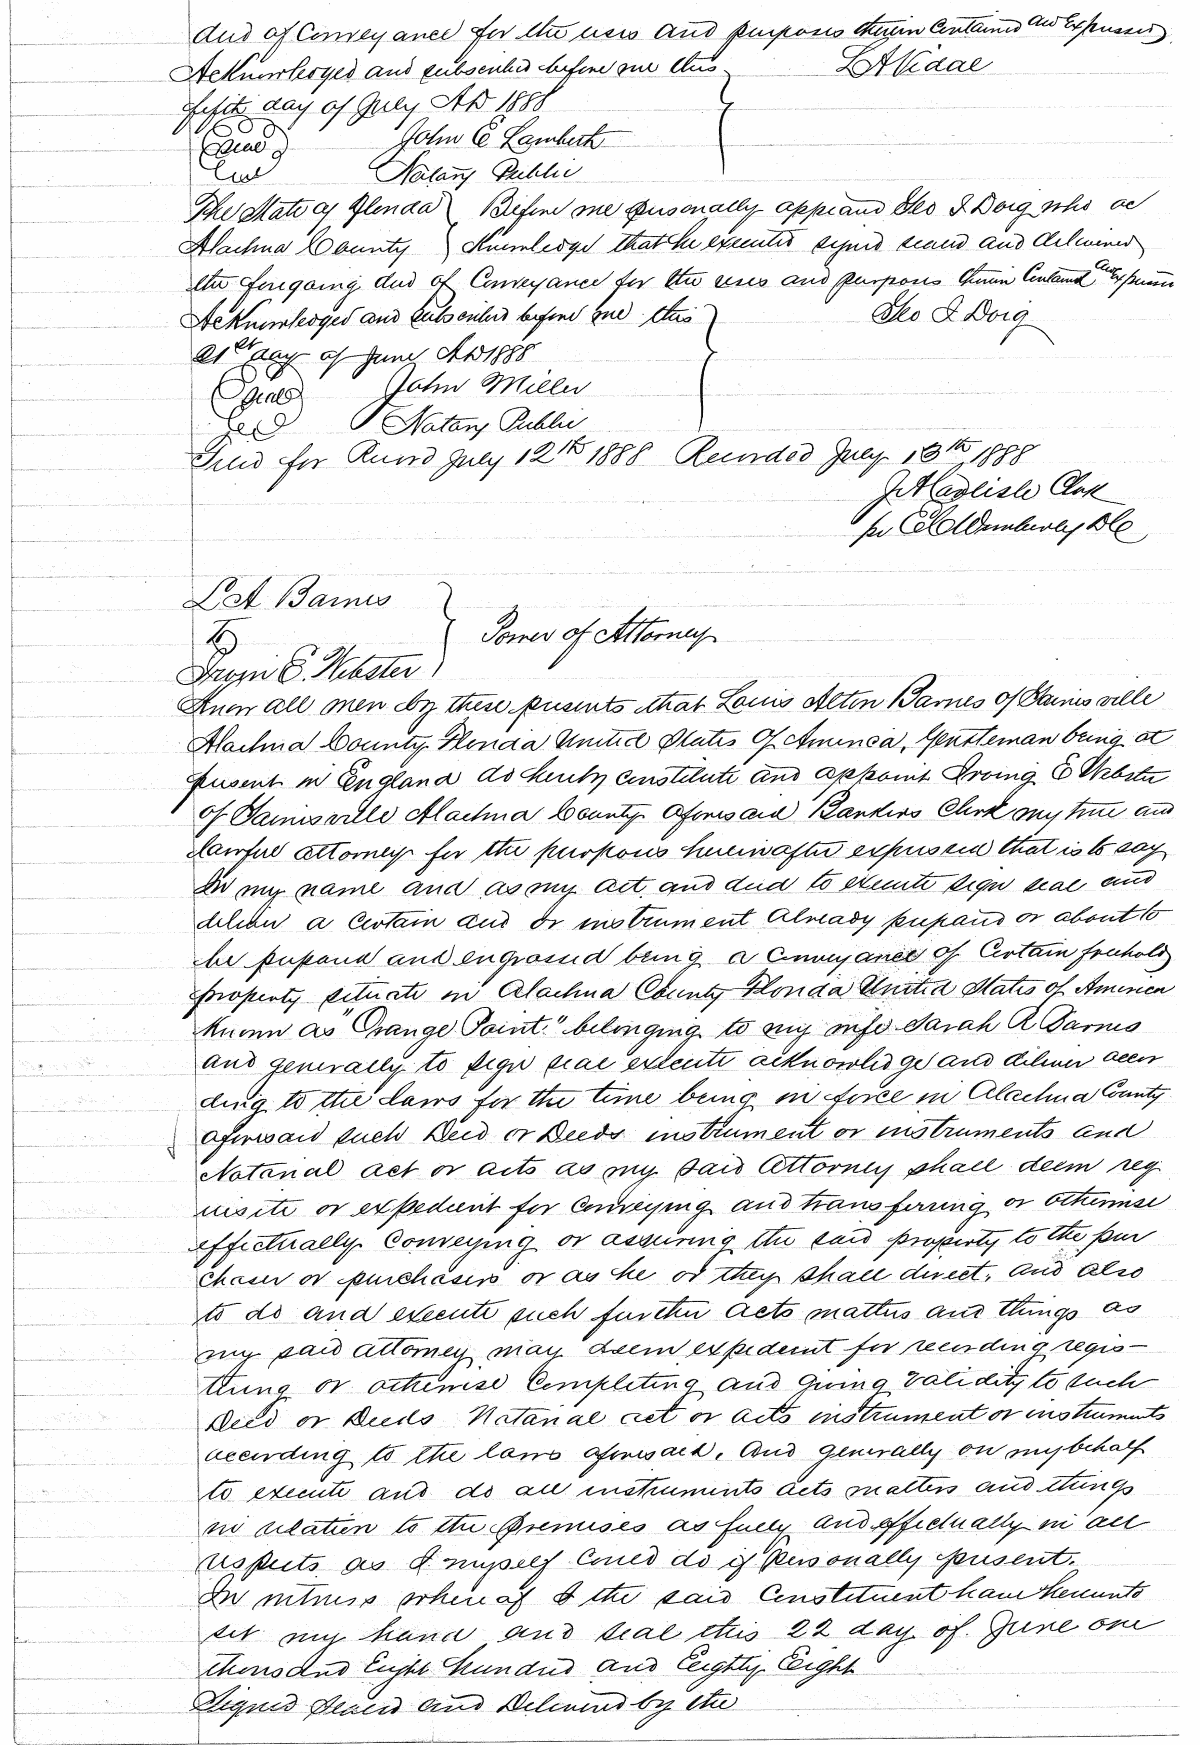 deed of Conveyance for the uses and purposes therein Contained and Expressed
Acknowledged and subscribed before me this L A Vidal
fifth day of July AD 1888
(Seal) John E Lambeth
Seal Notary Public
The State of Florida Before me personally appeared Geo I Doig who ac
Alachua County knowledge that he executed signed sealed and delivered
the foregoing deed of Conveyance for the uses and purposes therein Contained and Expressed
Acknowledged and subscribed before me this Geo I Doig
21st day of June AD 1888
(Seal) John Miller
Seal Notary Public
Filed for Record July 12th 1888 Recorded July 13th 1888
Clerk
pr DC
L A Barnes
To Power of Attorney
Irvin E. Webster
Know all men by these presents that Louis Alton Barnes of Gainesville
Alachua County Florida United States of America, Gentleman being at
present in England do hereby constitute and appoint Irving E Webster
of Gainesville Alachua County aforesaid Bankers Clerk my true and
lawful attorney for the purposes hereinafter expressed that is to say
In my name and as my act and deed to execute sign seal and
deliver a Certain deed or instrument Already prepared or about to
be prepared and engrossed being a Conveyance of Certain freehold
property situate in Alachua County Florida United States of America
known as "Orange Point" belonging to my wife Sarah R Barnes
and generally to sign seal execute acknowledge and deliver accor
ding to the laws for the time being in force in Alachua County
aforesaid such Deed or Deeds instrument or instruments and
Notarial act or acts as my said Attorney shall deem req
uisite or expedient for conveying and transferring or otherwise
effectually Conveying or assuring the said property to the pur
chaser or purchasers or as he or they shall direct, and also
to do and execute such further acts matters and things as
my said attorney may deem expedient for recording regis-
tering or otherwise Completing and giving validity to such
Deed or Deeds Notarial act or acts instrument or instruments
according to the laws aforesaid. And generally on my behalf
to execute and do all instruments acts matters and things
in relation to the premises as fully and effectually in all
respects as I myself Could do if Personally present.
In witness whereof I the said Constituent have hereunto
set my hand and seal this 22 day of June one
thousand Eight hundred and Eighty Eight
Signed Sealed and Delivered by the